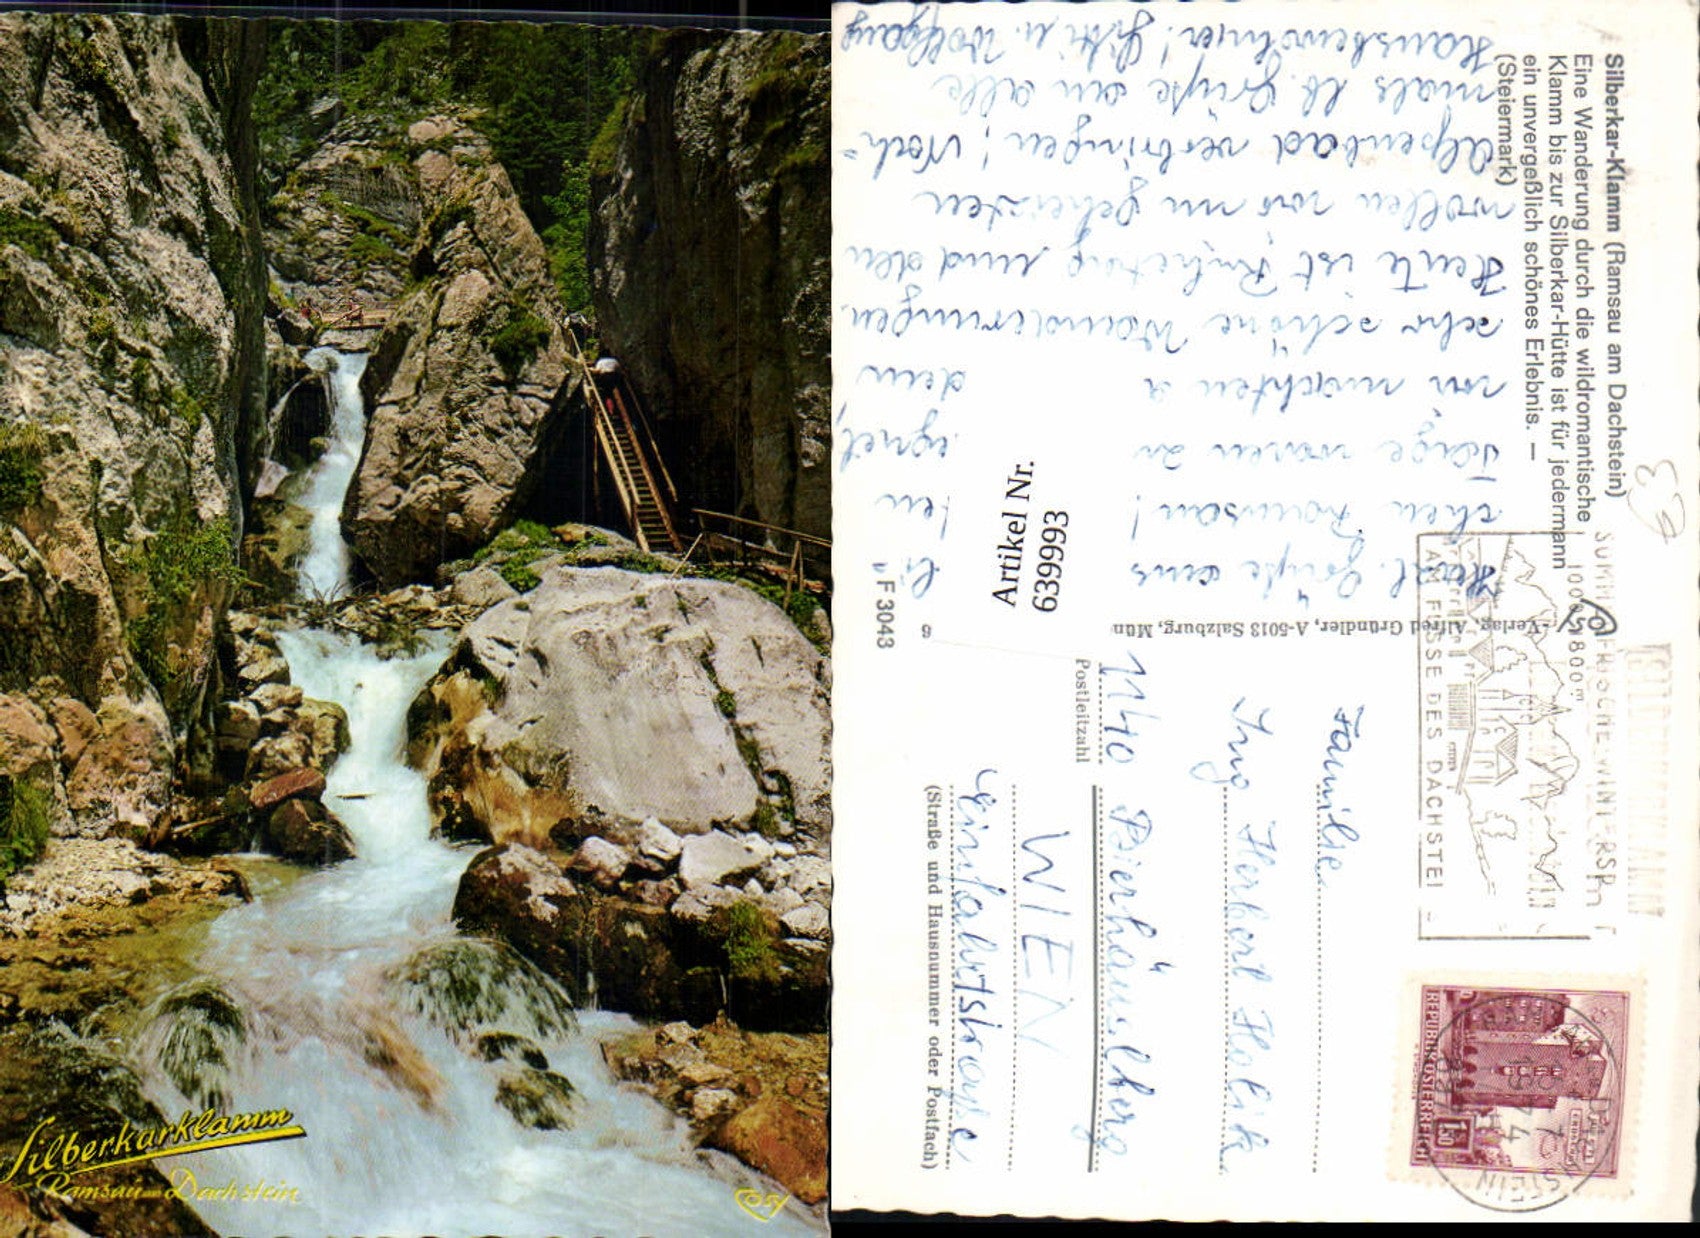 Silberkarklamm
Ramsau am Dachstein
COSY
Silberkar-Klamm (Ramsau am Dachstein)
Eine Wanderung durch die wildromantische
Klamm bis zur Silberkar-Hütte ist für jedermann
ein unvergeßlich schönes Erlebnis. —
(Steiermark)
Herzl. Grüße aus
Ramsau!
Tage waren
wir machten
sehr schöne Wanderungen.
Heute ist Ruhetag und den
wollen wir im geheizten
Alpenbad verbringen! Noch-
mals lb. Grüße an alle
Hausbewohner! Gitti u. Wolfgang
Artikel Nr.
639993
F 3043
Verlag, Alfred Gründler, A-5013 Salzburg, Mün
6
1000-1800m
AM FUSSE DES DACHSTEI
REPUBLIK ÖSTERREICH
1.50
Familie
Ing Herbert Holik
Postleitzahl
1140 Bierhäuslberg
WIEN
Leinfahrtstrasse
(Straße und Hausnummer oder Postfach)